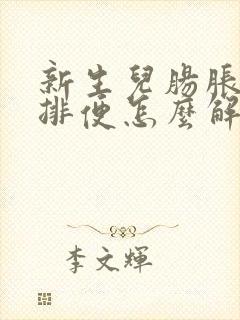 新生兒腸脹
排便怎麼解
李文輝